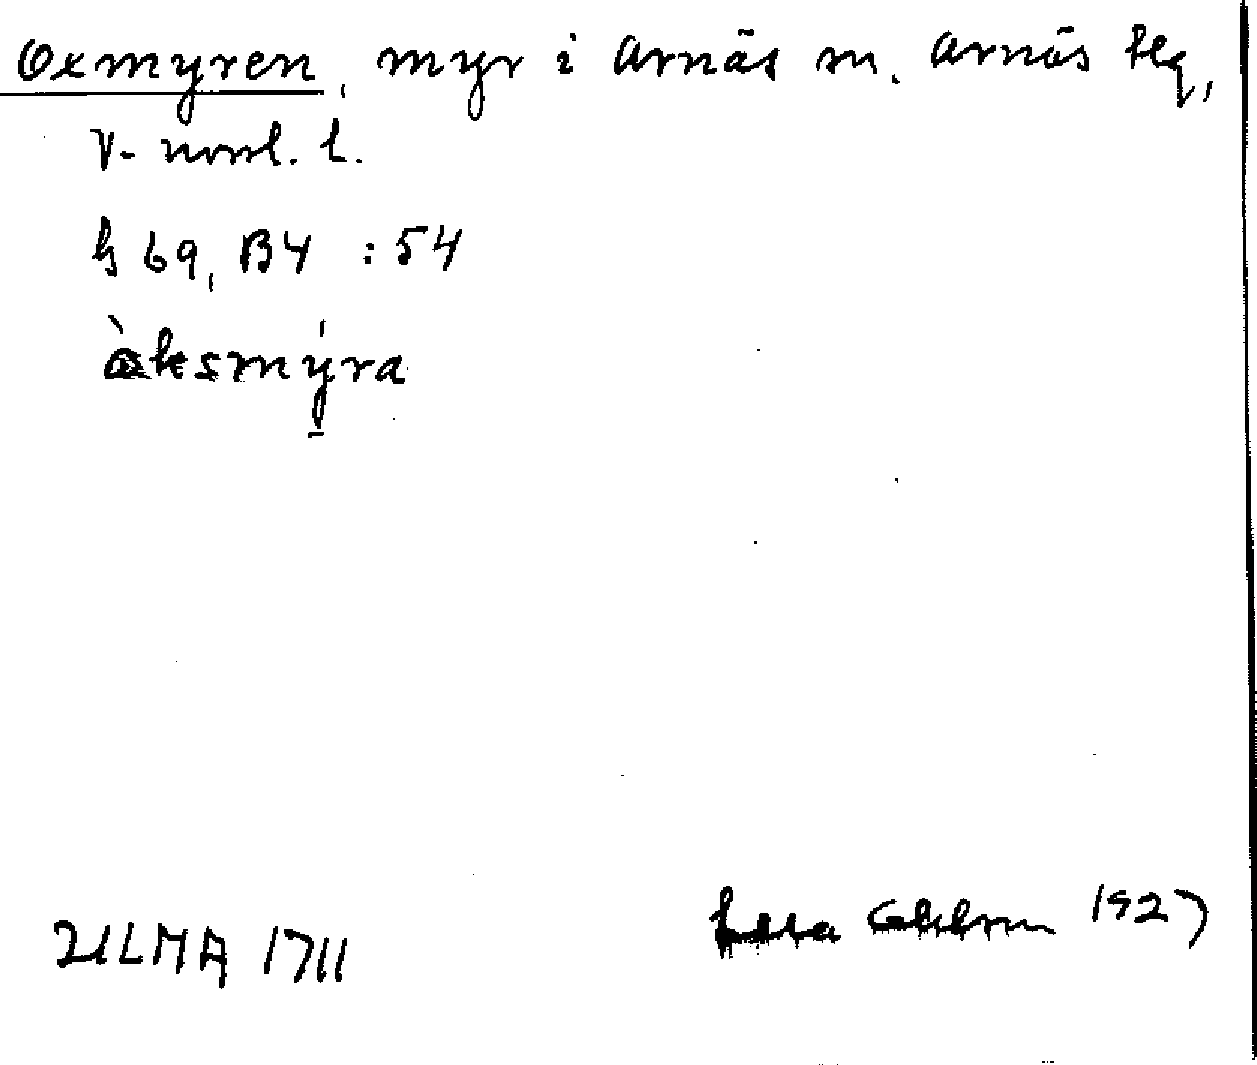 Oxmyren, myr i Arnäs sn. Arnäs
V. norrl. l.
h 69, B4 : 54
àksmýra
ULMA 1711
1927